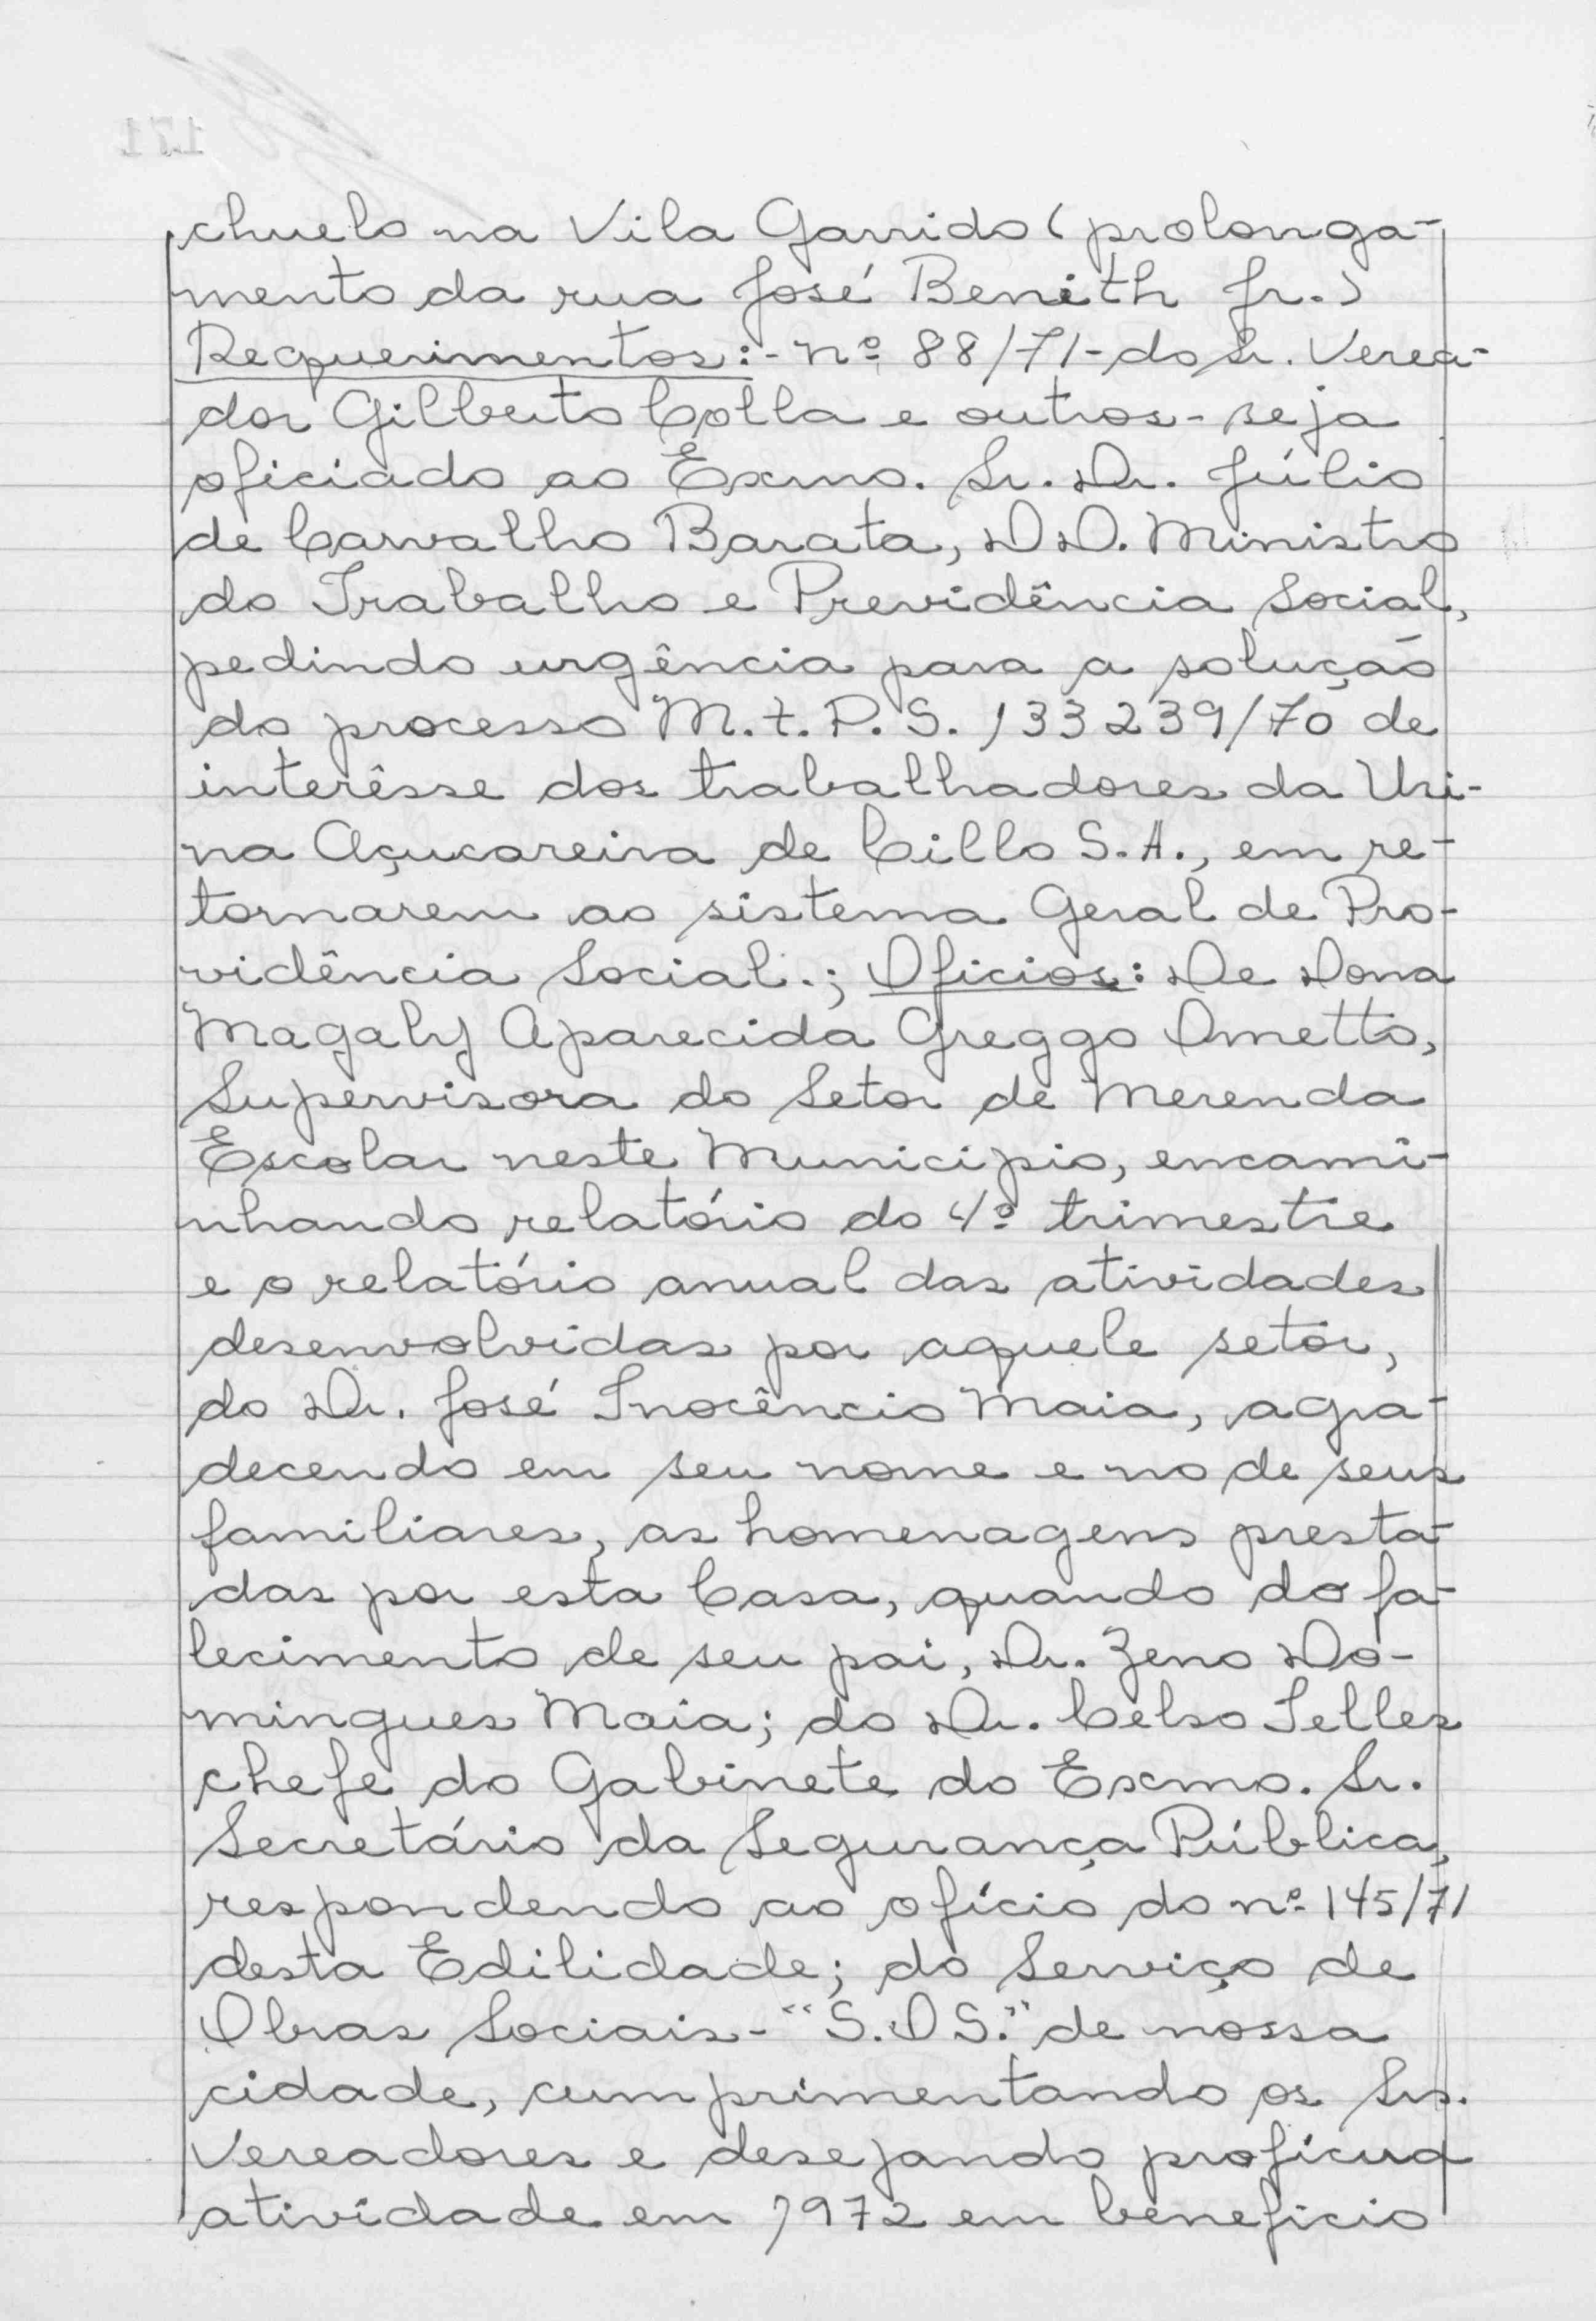 chuelo na Vila Garrido (prolonga-
mento da rua José Benith Jr.)
Requerimentos:- nº 88/71- do Sr. Verea-
dor Gilberto Colla e outros - seja
oficiado ao Exmo. Sr. Dr. Júlio
de Carvalho Barata, DD. Ministro
do Trabalho e Previdência Social,
pedindo urgência para a solução
do processo M.t.P.S. 133239/70 de
interêsse dos trabalhadores da Usi-
na Açucareira de Cillo S.A., em re-
tornarem ao sistema Geral de Pro-
vidência Social.; Oficios: De Dona
Magaly Aparecida Greggo Ometto,
Supervisora do Setor de Merenda
Escolar neste Municipio, encami-
nhando relatório do 4º trimestre
e o relatório anual das atividades
desenvolvidas por aquele setor,
do Dr. José Inocêncio Maia, agra-
decendo em seu nome e no de seus
familiares, as homenagens presta-
das por esta Casa, quando do fa-
lecimento de seu pai, Dr. Zeno Do-
mingues Maia; do Dr. Celso Telles
chefe do Gabinete do Exmo. Sr.
Secretário da Segurança Pública,
respondendo ao ofício do nº 145/71
desta Edilidade; do Serviço de
Obras Sociais - "S.OS." de nossa
cidade, cumprimentando os Srs.
Vereadores e desejando profícua
atividade em 1972 em beneficio